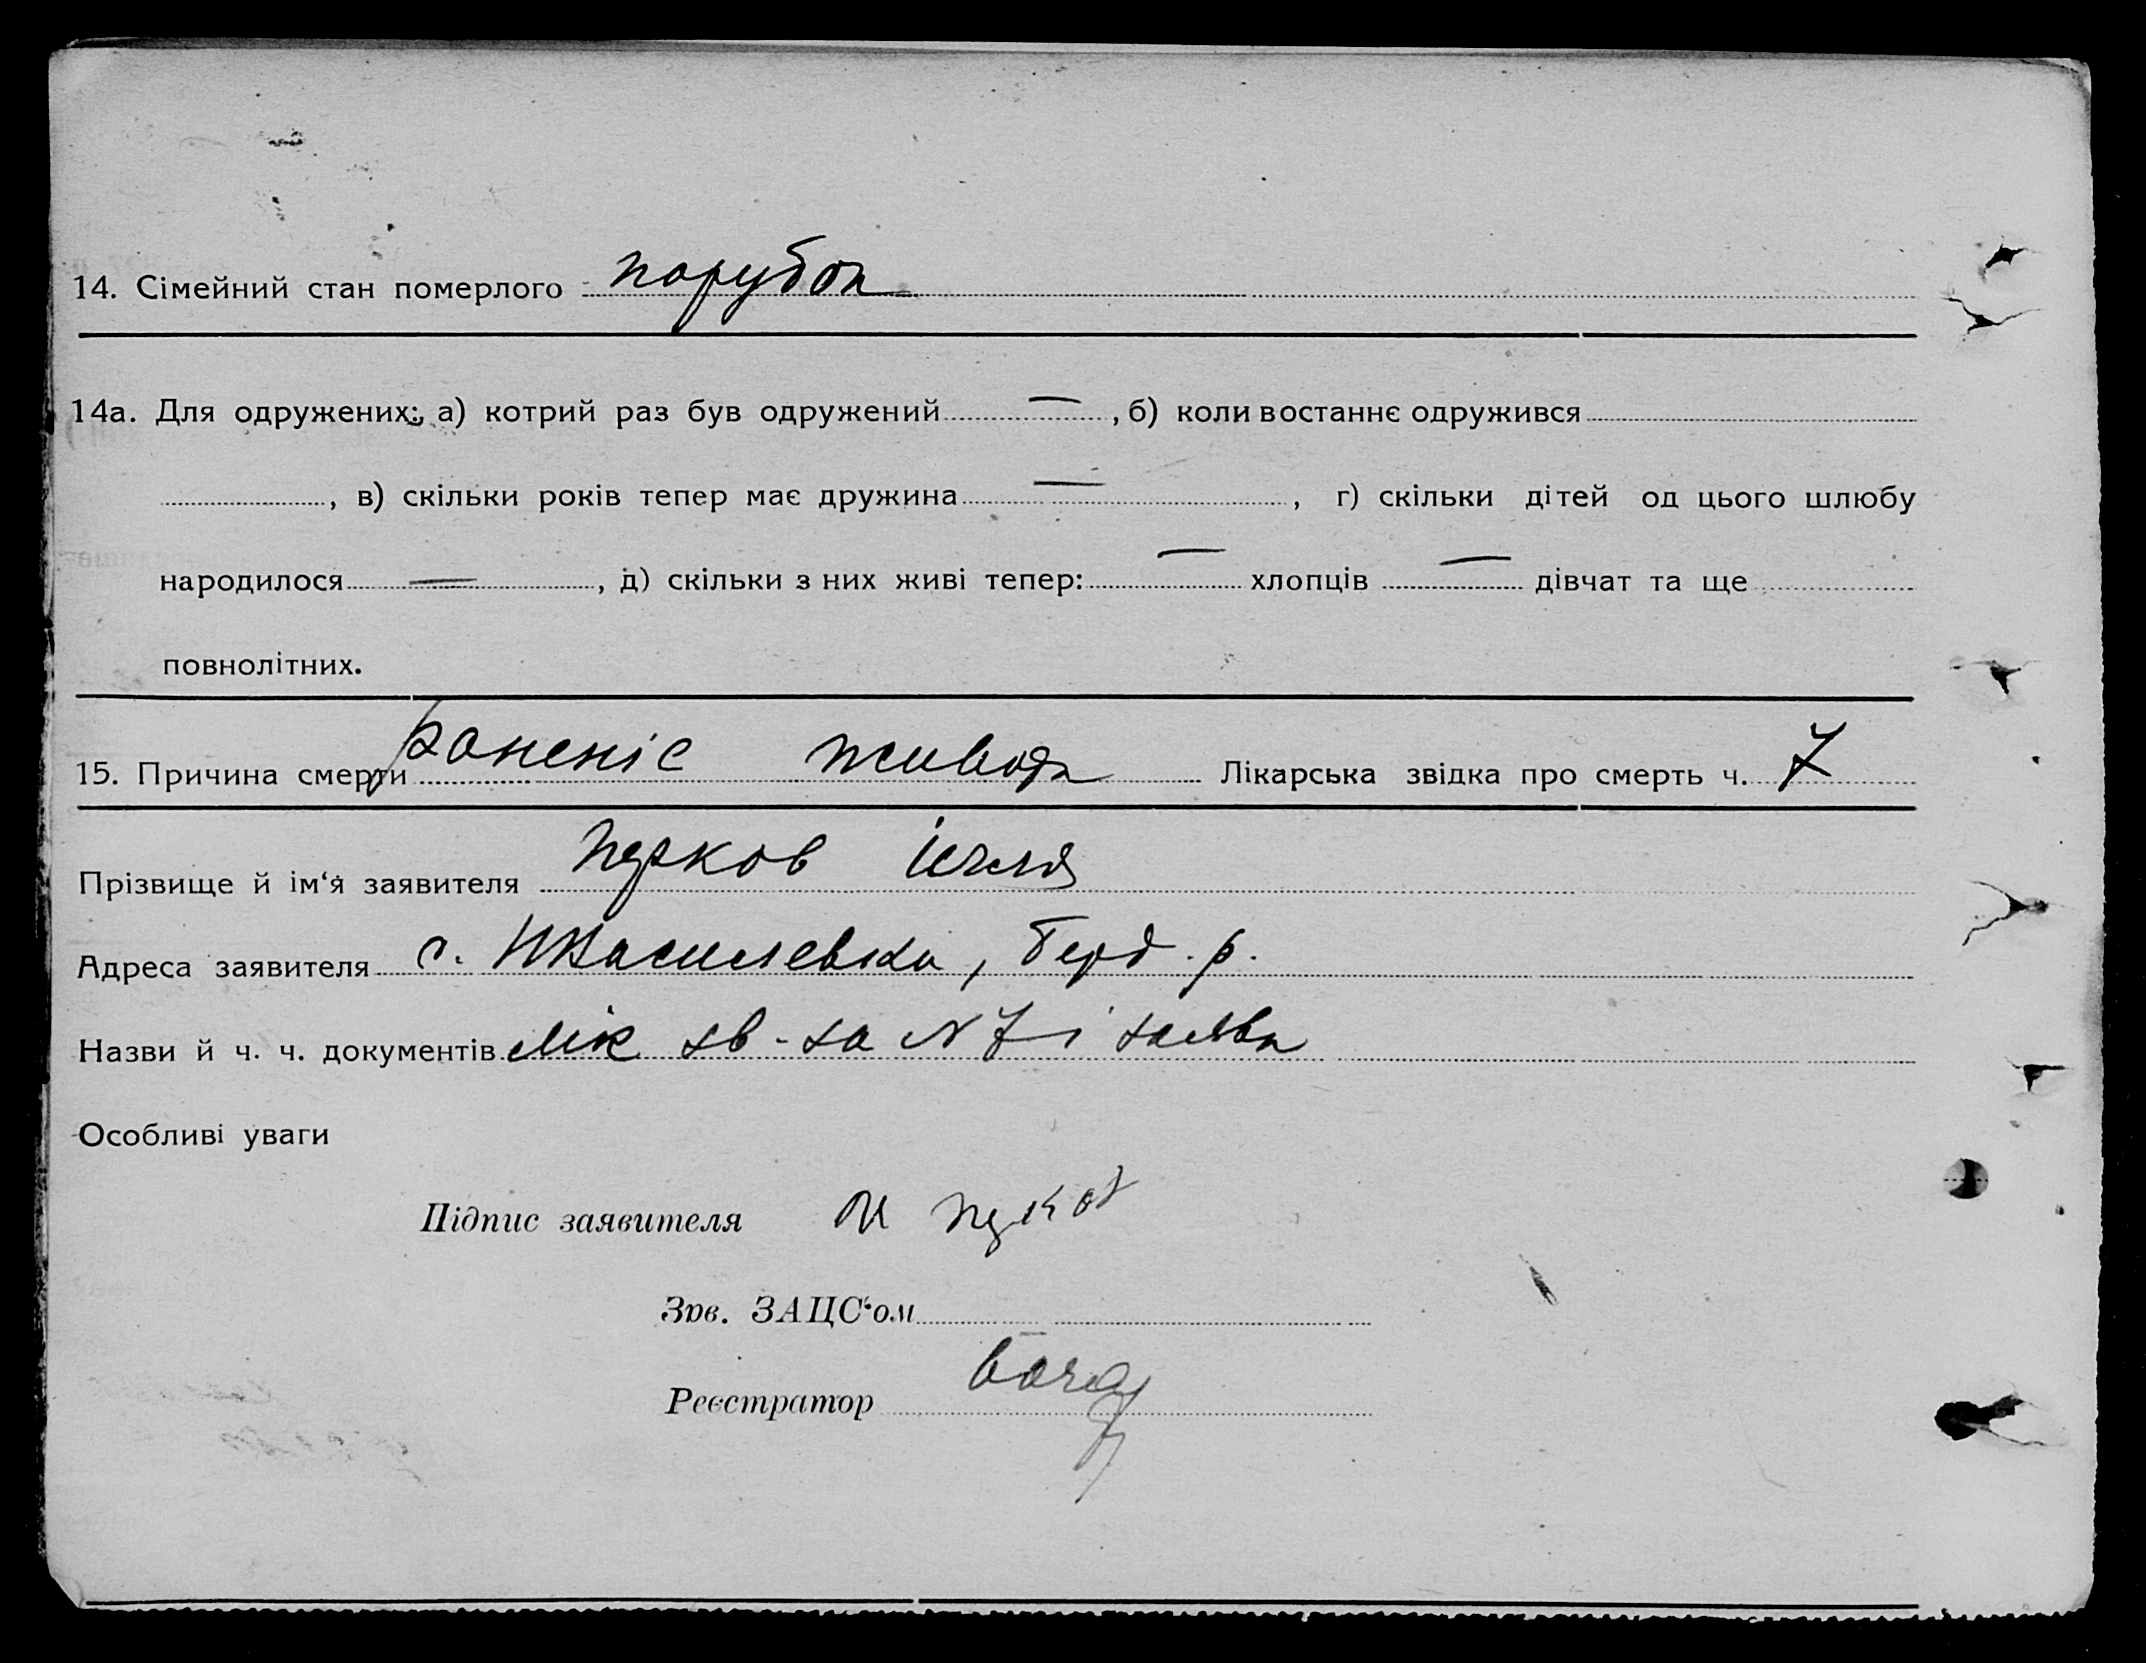 14. Сімейний стан померлого парубок
14а. Для одружених: а) котрий раз був одружений —, б) коли востаннє одружився
, в) скільки років тепер має дружина —, г) скільки дітей од цього шлюбу
народилося —, д) скільки з них живі тепер: — хлопців — дівчат та ще
повнолітних.
15. Причина смерти раненіе живота Лікарська звідка про смерть ч. 7
Прізвище й ім‘я заявителя
Адреса заявителя с. Василевка, Берд. р.
Назви й ч. ч. документів лік зв-ка N 7 і заява
Особливі уваги
Підпис заявителя
Зав. ЗАЦС‘ом
Реєстратор